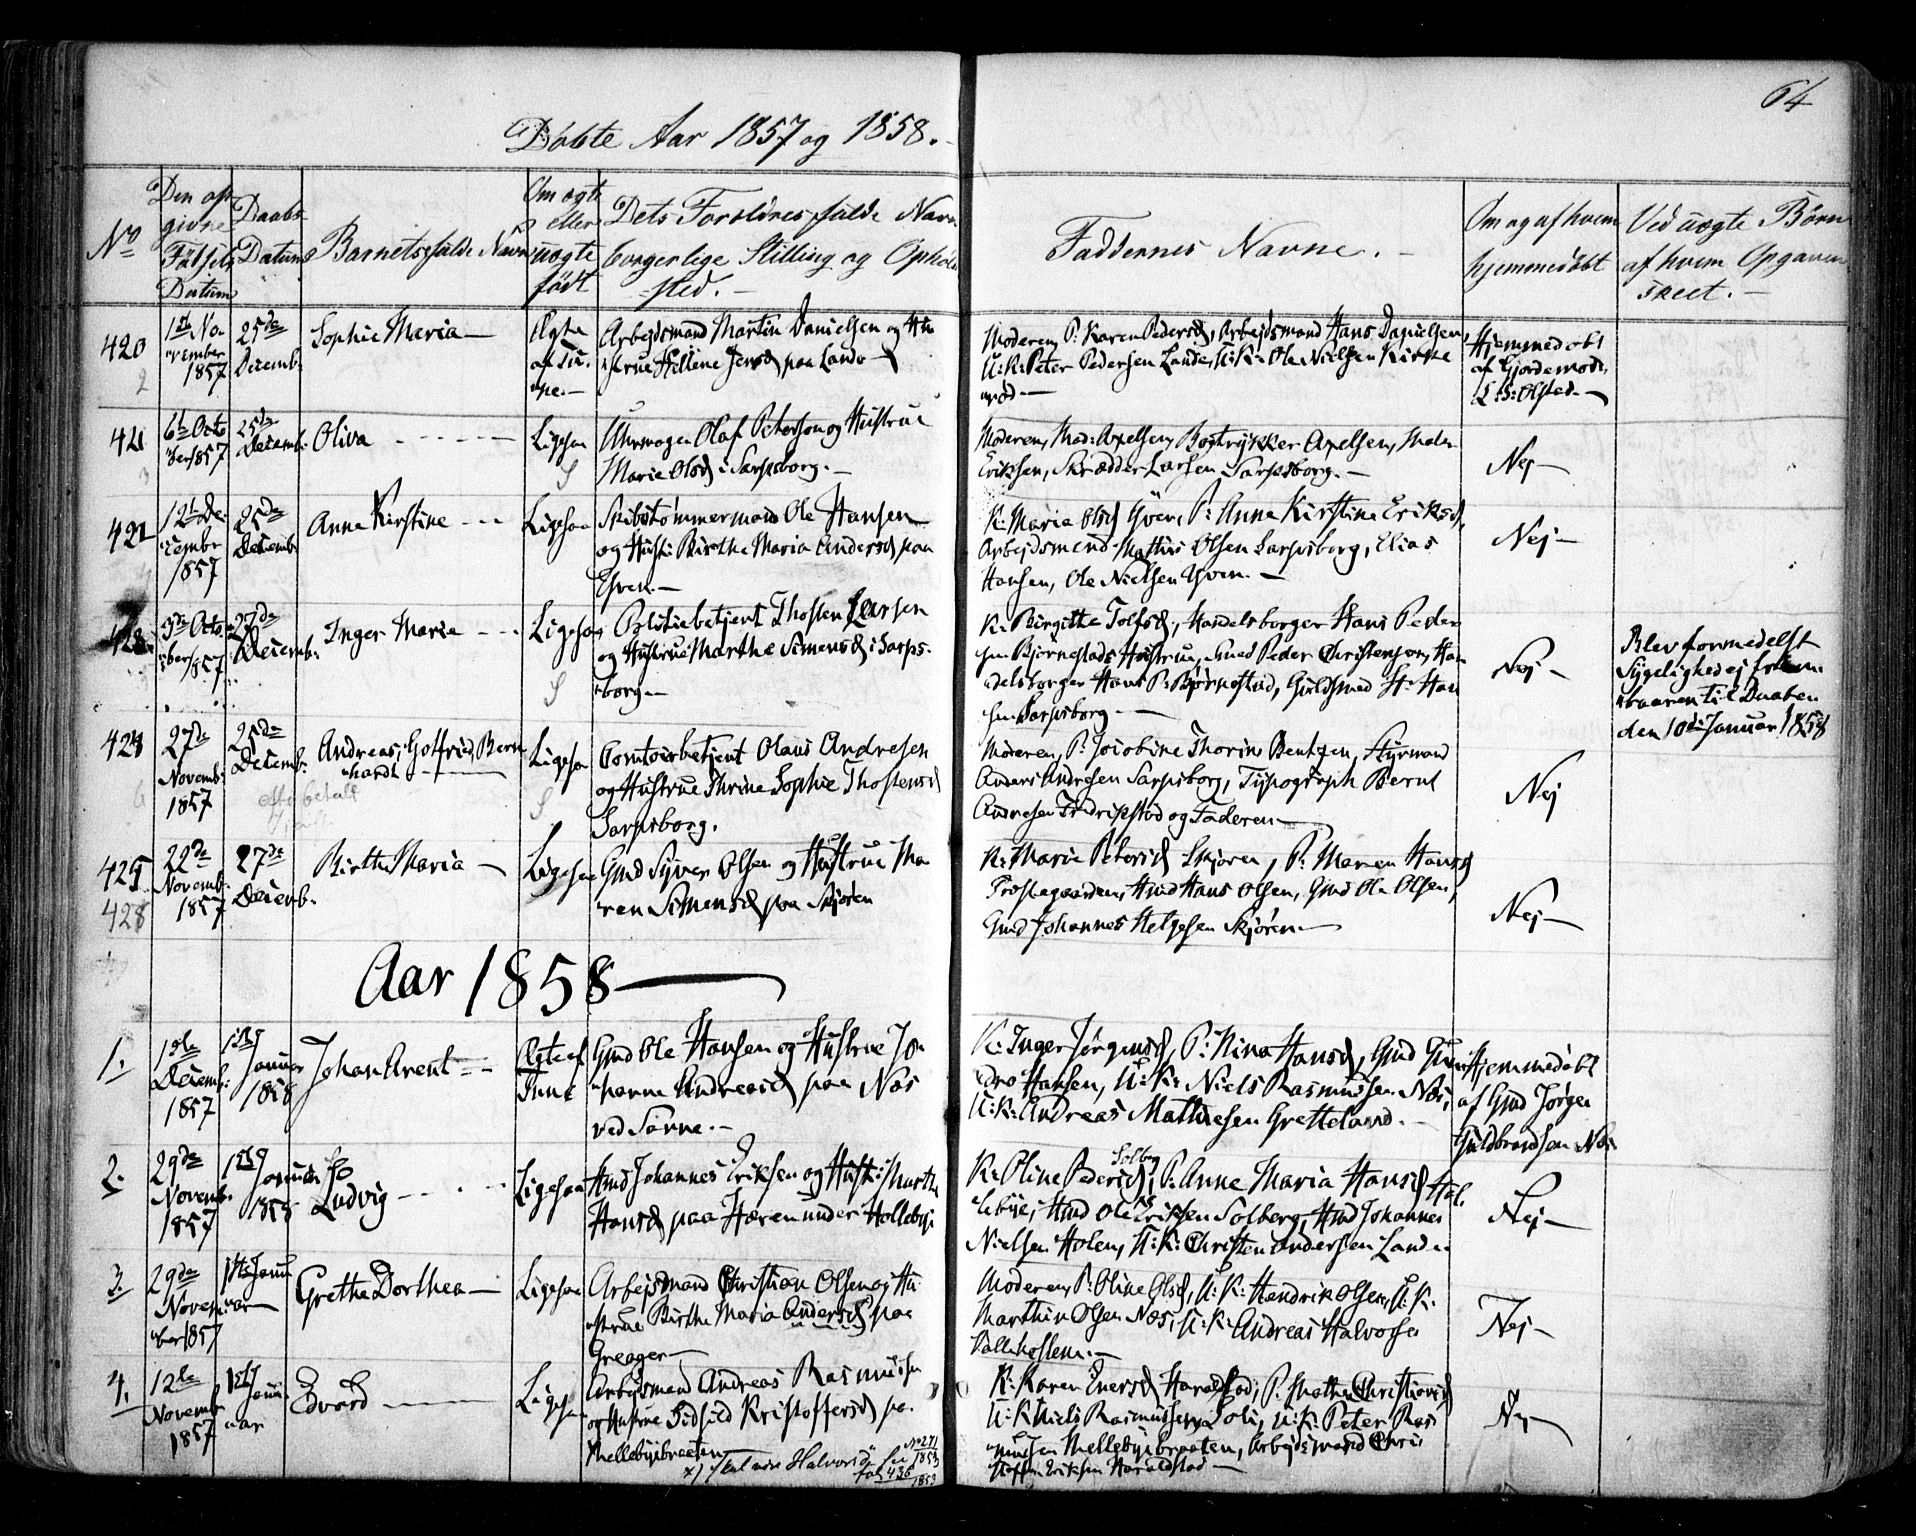 64
Døbte Aar 1857 og 1858.
No
Den op-
givne
Fødsels
Datum
Daabs
Datum
Barnets fulde Navn
Om ægte
eller
uægte
født
Dets Forældres fulde Navn
borgerlige Stilling og Ophold
sted.
Faddernes Navne.
Om og af hvem
hjemmedøbt
Ved uægte Børn
af hvem Opgaven
skeet.
420
1ste No-
vember
1857
25de
Decemb.
Sophie Maria
Ægte
Arbejdsmand Martin Danielsen og Hu
strue Hellene Jensd paa Lande
Moderen, P: Karen Pedersd, Arbejdsmand Hans Danielsen,
U:K: Peter Pedersen Lande, U:K: Ole Nielsen Kirke
Hjemmedøbt
af Gjordemod.
Olsted.
421
6te Octo
ber 1857
25de
Decemb.
Oliva
Ligesaa
Uhrmager Olaf Peterson og Hustrue
Marie Olsd i Sarpsborg.
Moderen, Mad: Axelsen, Bogtrykker Axelsen, Maler
Eriksen, Skrædder Larsen Sarpsborg.
Nej
422
12te De-
cember
1857
25de
Decemb
Anne Kirstine
Ligesaa
Skibstømmermand Ole Hansen
og Hust: Birthe Maria Andersd paa
Yven.
K: Maria Olsd Yven, P: Anne Kirstine Eriksd,
Arbejdsmend Mathis Olsen Sarpsborg, Elias
Hansen, Ole Nielsen Yven.
Nej
423.
3de Octo-
ber 1857
27de
Decemb.
Inger Marie
Ligesaa
Politiebetjent Thosten Larsen
og Hustrue Marthe Simensd i Sarps-
borg
K: Birgitte Tolfsd, Handelsborger Hans Peder
sen Bjørnestads Hustrue, Smed Peder Christensen, Han
delsborger Hans P: Bjørnestad, Guldsmed H: Han
sen Sarpsborg
Nej
Blev formedelst
Sygelighed ej frem
baaren til Daaben
den 10de Januar 1858
424
27de
Novemb.
1857
25de
Decemb.
Andreas, Gotfried, Bern
hardt
Ligesaa
Contoirbetjent Olaus Andresen
og Hustrue Thrine Sophie Thostensd
Sarpsborg.
Moderen, P: Jocobine Thorine Bentzen, Styrmand
Anders Andresen Sarpsborg, Typograph Bernt
Andresen Fredrikstad og Faderen
Nej
425
428
22de
Novemb.
1857
27de
Decemb.
Birthe Maria
Ligesaa
Gmd Syver Olsen og Hustrue Ma
ren Simensd paa Skjøren
K: Marie Petersd Skjøren, P: Maren Hansd
Prostegaarden, Hmd Hans Olsen, Gmd Ole Olsen,
Gmd Johannes Helgesen Skjøren
Nej
Aar 1858
1.
1ste
Decemb:
1857
1ste
Januar
1858
Johan Arent
Ægte af
Gmd Ole Hansen og Hustrue Jo
hanne Andreasd paa Næs
ved Sarne.
K: Inger Jørgensd, P: Nina Hansd, Gmd
Hansen, U:K: Niels Rasmussen Næs,
U:K: Andreas Mathiesen Gretteland.
Hjemmedøbt
af Gmd Jørgen
Guldbrandsen Næs
2.
29de
Novemb.
1857
1ste
Januar
1858
Ludvig
Ligesaa
Hmd Johannes Eriksen og Hust: Marthe
Hansd paa Hæren under Hollebye
K: Oline Pedersd Solberg, P: Anne Maria Hansd Hol-
lebye, Hmd Ole Eriksen Solberg, Hmd Johannes
Nielsen Holen, U:K: Christen Andersen Lande
Nej
3.
29de
Novem
ber 1857
1ste Janu
ar
Grethe Dorthea
Ligesaa
Arbejdsmand Christian Olsen og Hu
strue Birthe Maria Andersd x) paa
Greager
Moderen, P: Oline Olsd, U:K: Hendrik Olsen, U:K:
Marthin Olsen Næs, U:K: Andreas Halvorsen
Nej
4.
12te
Novemb
1857
1ste
Janu-
ar
Edvard
Ligesaa
Arbejdsmand Andreas Rasmussen
og Hustrue Sidsild Kristoffersd paa
Mellebyebraaten
K: Karen Enersd Haraldstad, P: Christiansd
U:K: Niels Rasmussen, U:K: Peter Ras
mussen Mellebyebraaten, Arbejdsmand Chri
stoffer Eriksen Haraldstad
Nej
x) skal være Halvorsd No 271
1853
436
1853